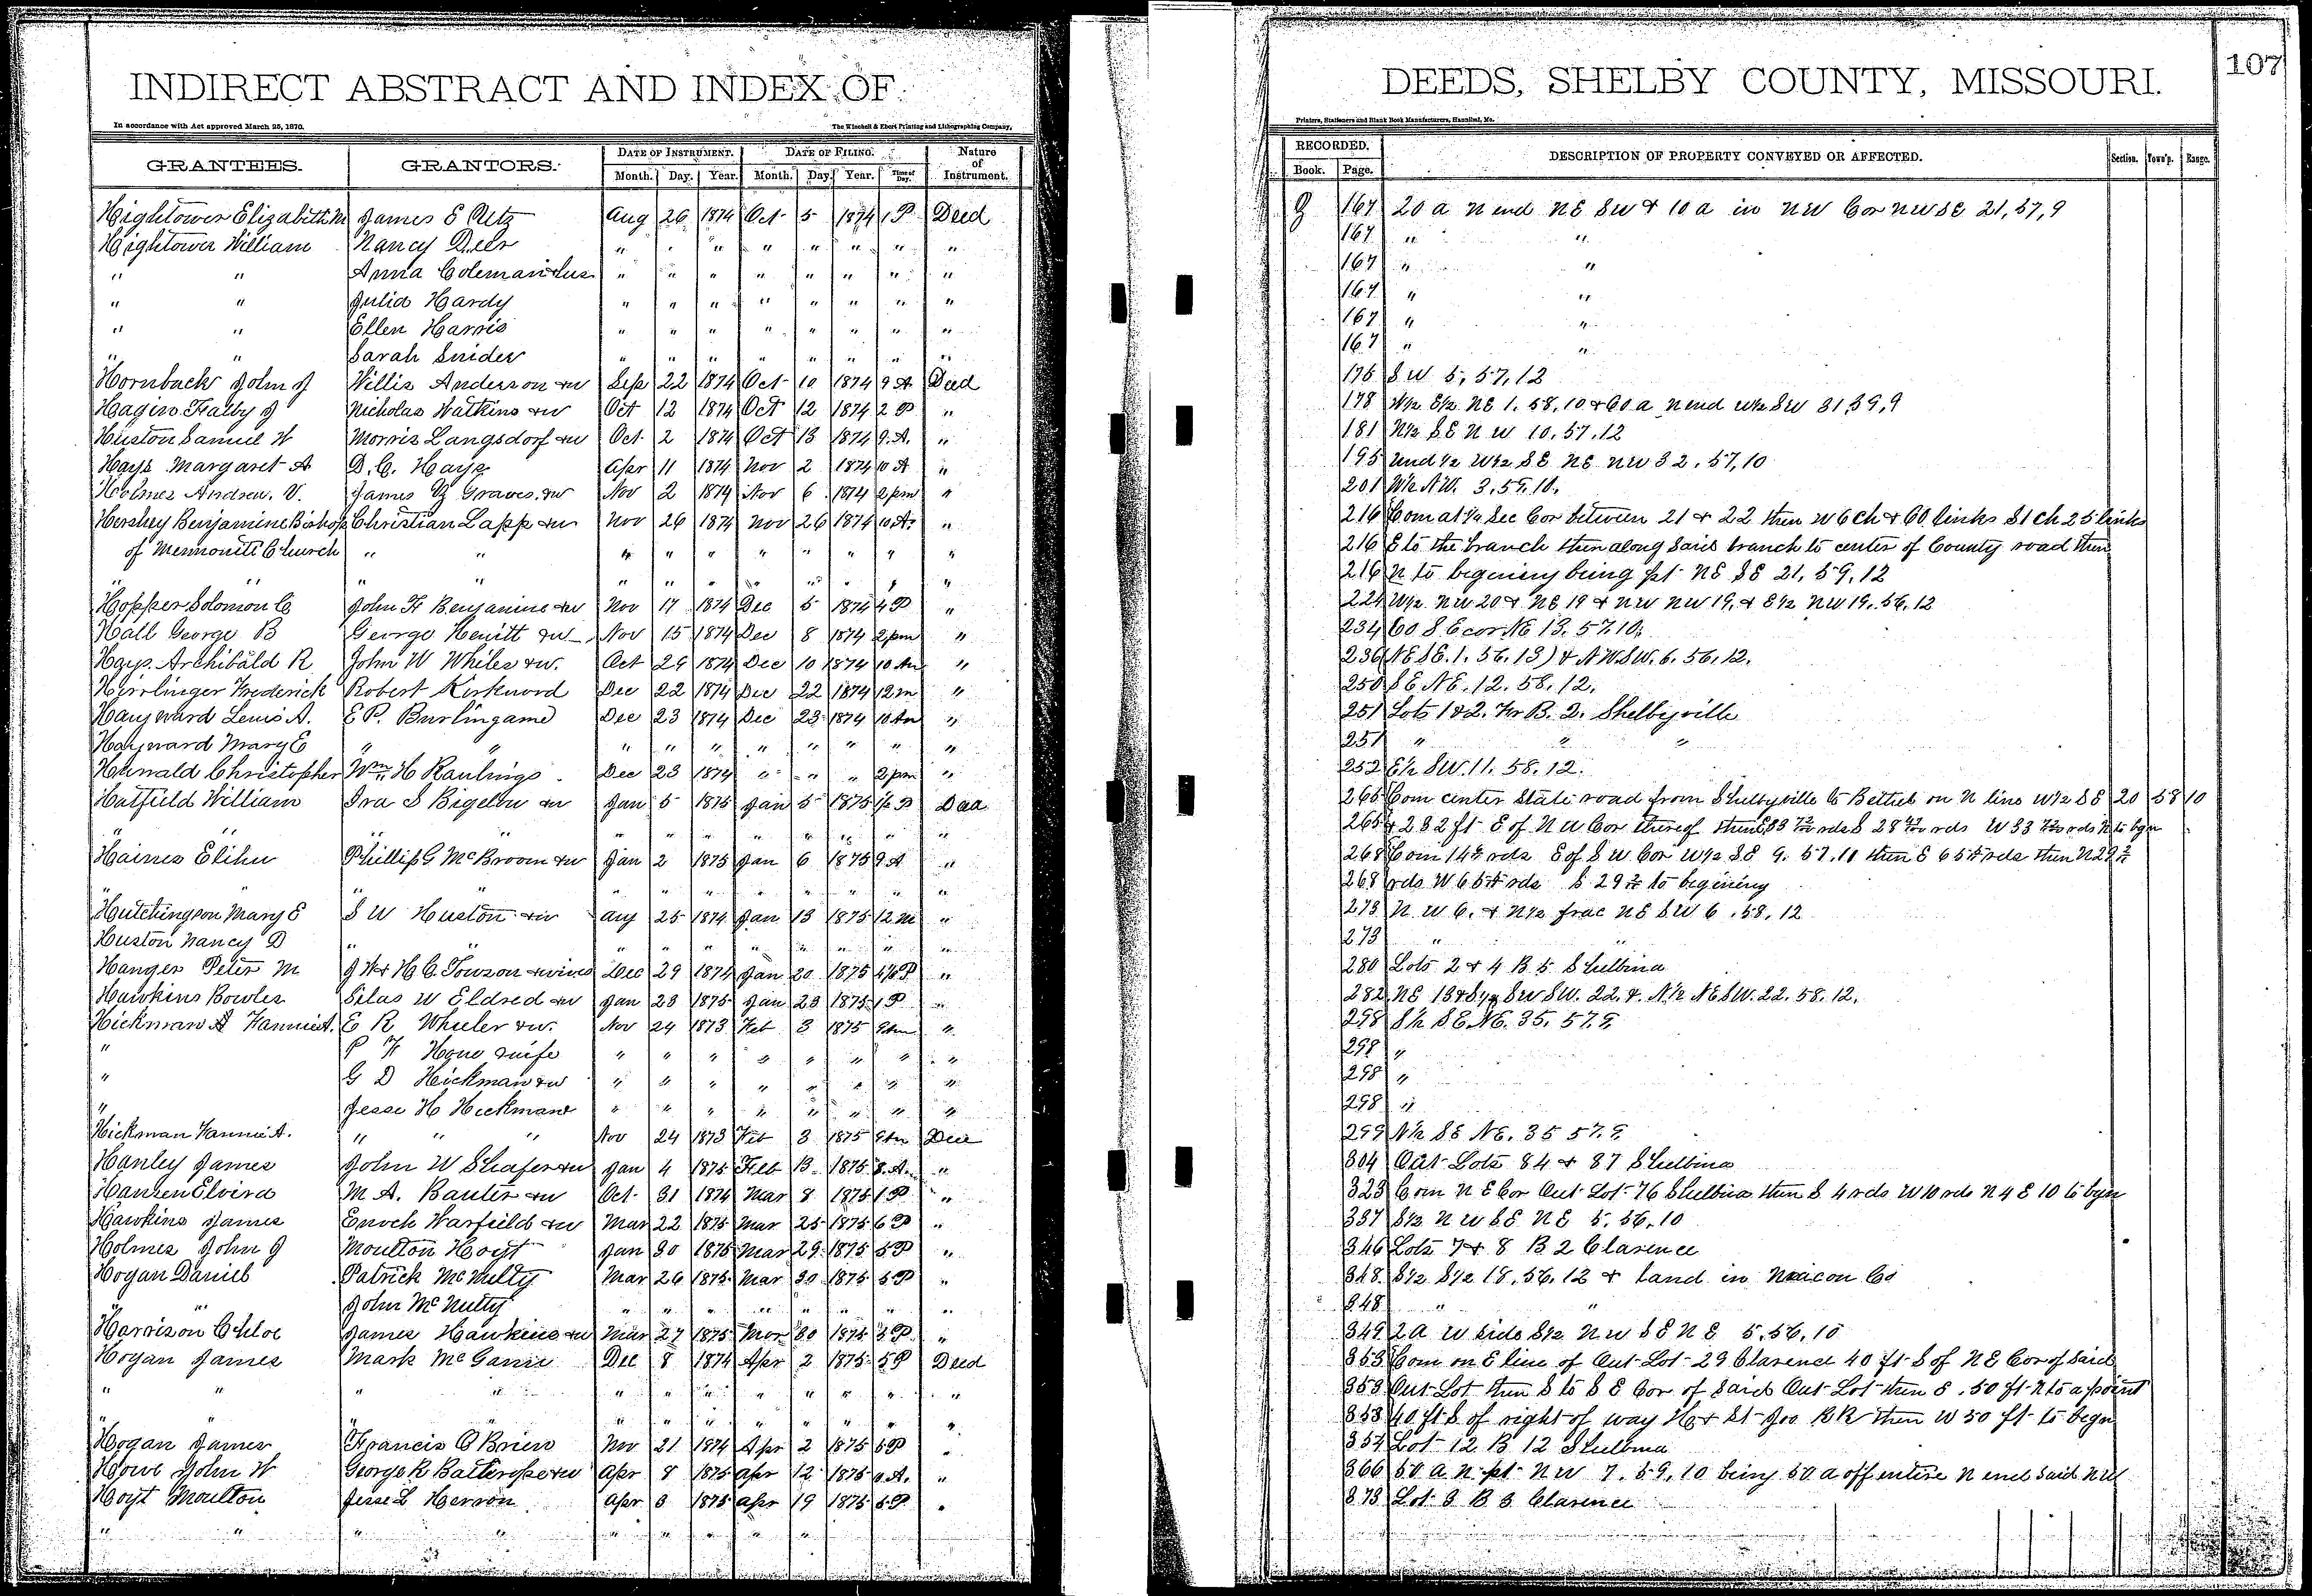 INDIRECT ABSTRACT AND INDEX OF
In accordance with Act approved March 25, 1870.
The Winchell & Ebert Printing and Lithographing Company,
GRANTEES. GRANTORS. DATE OF INSTRUMENT. DATE OF FILING. Nature of Instrument.
Month. Day. Year. Month. Day. Year. Time of Day.
Hightower Elizabeth M James E Utz Aug 26 1874 Oct 5 1874 1 P Deed
Hightower William Nancy Deer " " " " " " " "
" " Anna Coleman & hus " " " " " " " "
" " Julia Hardy " " " " " " " "
" " Ellen Harris " " " " " " " "
" " Sarah Snider " " " " " " " "
Hornback John J Willis Anderson & w Sep 22 1874 Oct 10 1874 9 A Deed
Hagin J Nicholas Watkins & w Oct 12 1874 Oct 12 1874 2 P "
Huston Samuel W Morris Langsdorf & w Oct 2 1874 Oct 13 1874 9 A. "
Hays Margaret A D. C. Hays Apr 11 1874 Nov 2 1874 10 A "
Holmes Andrew. V. James Graves & w Nov 2 1874 Nov 6 1874 2 pm "
Hershey Benjamine Bishop Christian Lapp & w Nov 26 1874 Nov 26 1874 10 A. "
of Mennonite Church " " " " " " " " " "
" " " " " " " " " " " "
Hopper Solomon C John F Benjamine & w Nov 17 1874 Dec 5 1874 4 P "
Hall George B George Hewitt & w Nov 15 1874 Dec 8 1874 2 pm "
Hays Archibald R John W Whiles & w. Oct 29 1874 Dec 10 1874 10 Am "
Hirrlinger Frederick Robert Kirkwood Dec 22 1874 Dec 22 1874 12 m "
Hayward Lewis A. E P. Burlingame Dec 23 1874 Dec 23 1874 10 Am "
Hayward Mary E " " " " " " " " " "
Hunald Christopher Wm H Rawlings Dec 23 1874 " " " 2 pm "
Hatfield William Ira S Bigelow & w Jan 5 1875 Jan 5 1875 P Deed
" " " " " " " " " " " "
Haines Elihu Phillip G McBroom & w Jan 2 1875 Jan 6 1875 9 A "
" " " " " " " " " " " "
Hutchingson Mary E S W Huston & w Aug 25 1874 Jan 13 1875 12 M "
Huston Nancy D " " " " " " " " "
Hanger Peter M J W & H C Towson & wives Dec 29 1874 Jan 20 1875 P "
Hawkins Bowles Silas W Eldred & w Jan 23 1875 Jan 23 1875 1 P "
Hickman Fannie A. E R Wheeler & w. Nov 24 1873 Feb 3 1875 9 Am "
" P F Howe & wife " " " " " " " "
" G D Hickman & w " " " " " " " "
" Jesse H Hickman " " " " " " " "
Hickman Fannie A. " " " Nov 24 1873 Feb 3 1875 9 Am Deed
Hanley James John W Shafer & w Jan 4 1875 Feb 13 1875 8 A. "
Hansen Elvira M A. Banter & w Oct. 31 1874 Mar 8 1875 1 P "
Hawkins James Enoch Warfield & w Mar 22 1875 Mar 25 1875 6 P "
Holmes John J Moulton Hoyt Jan 30 1875 Mar 29 1875 5 P "
Hogan Daniel Patrick McNulty Mar 26 1875 Mar 30 1875 5 P "
" " John McNulty " " " " " " " "
Harrison Chloe James Hawkins & w Mar 27 1875 Mar 30 1875 3 P "
Hogan James Mark McGann Dec 8 1874 Apr 2 1875 5 P Deed
" " " " " " " " " " " "
" " " " " " " " " "
Hogan James Francis O Brien Nov 21 1874 Apr 2 1875 5 P "
Howe John W George R Balthrope & w Apr 8 1875 Apr 12 1875 A. "
Hoyt Moulton Jesse L Herron Apr 3 1875 Apr 19 1875 5 P "
" " " " " " " " "
DEEDS, SHELBY COUNTY, MISSOURI.
107
Printers, Stationers and Blank Book Manufacturers, Hannibal, Mo.
RECORDED. DESCRIPTION OF PROPERTY CONVEYED OR AFFECTED. Section. Town'p. Range.
Book. Page.
167 20 a N end NE SW & 10 a in NW Cor NW SE 21, 57, 9
167 " "
167 " "
167 " "
167 " "
167 " "
175 SW 5, 57, 12
178 W½ E½ NE 1. 58, 10 & 60 a N end W½ SW 31, 59, 9
181 N½ SE NW 10. 57. 12
195 Und ½ W½ SE NE NW 32. 57, 10
201 W½ NW. 3. 59. 10.
216 Com at ¼ Sec Cor between 21 & 22 then W 6 Ch & 60 links S 1 Ch 25 links
216 E to the branch then along said branch to center of County road then
216 N to begining being pt NE SE 21, 59, 12
224 W½ NW 20 & NE 19 & NW NW 19, & E½ NW 19. 56. 12
234 60 S E cor NE 13. 57. 10.
236 (NE SE. 1. 56. 13) & NW SW. 6. 56. 12.
250 SE NE. 12. 58. 12.
251 Lots 1 & 2. B. 2. Shelbyville
251 " " "
252 E½ SW. 11. 58. 12.
265 Com center State road from Shelbyville to Bethel on N line W½ SE 20 58 10
265 & 232 ft E of NW Cor thereof then E 33 rds S 28 rds W 33 rds N to bgn
268 Com 14 rds E of SW Cor W½ SE 9. 57. 11 then E 65 rds then N 29
268 rds W 65 rds S 29 to begining
273 NW 6. & N½ frac NE SW 6. 58. 12
273 " "
280 Lots 2 & 4 B 5 Shelbina
282 NE 13 & S½ SW SW. 22. & N½ NE SW. 22. 58. 12.
298 S½ SE NE. 35. 57. 9.
298 "
298 "
298 "
299 N½ SE NE. 35 57. 9.
304 Out Lots 84 & 87 Shelbina
323 Com NE Cor Out Lot 76 Shelbina then S 4 rds W 10 rds N 4 E 10 to bgn
337 S½ NW SE NE 5. 56. 10
346 Lots 7 & 8 B 2 Clarence
348 S½ S½ 18. 56. 12 & land in Macon Co
348 " "
349 2 A W side S½ NW SE NE 5. 56. 10
353 Com on E line of Out Lot 29 Clarence 40 ft S of NE Cor of Said
353 Out Lot then S to SE Cor of Said Out Lot then E. 50 ft N to a point
353 40 ft S of right of way H & St Joe RR then W 50 ft to begn
354 Lot 12 B 12 Shelbina
366 50 a N pt NW 7. 59. 10 being 50 a off entire N end said NW
373 Lot 3 B 3 Clarence